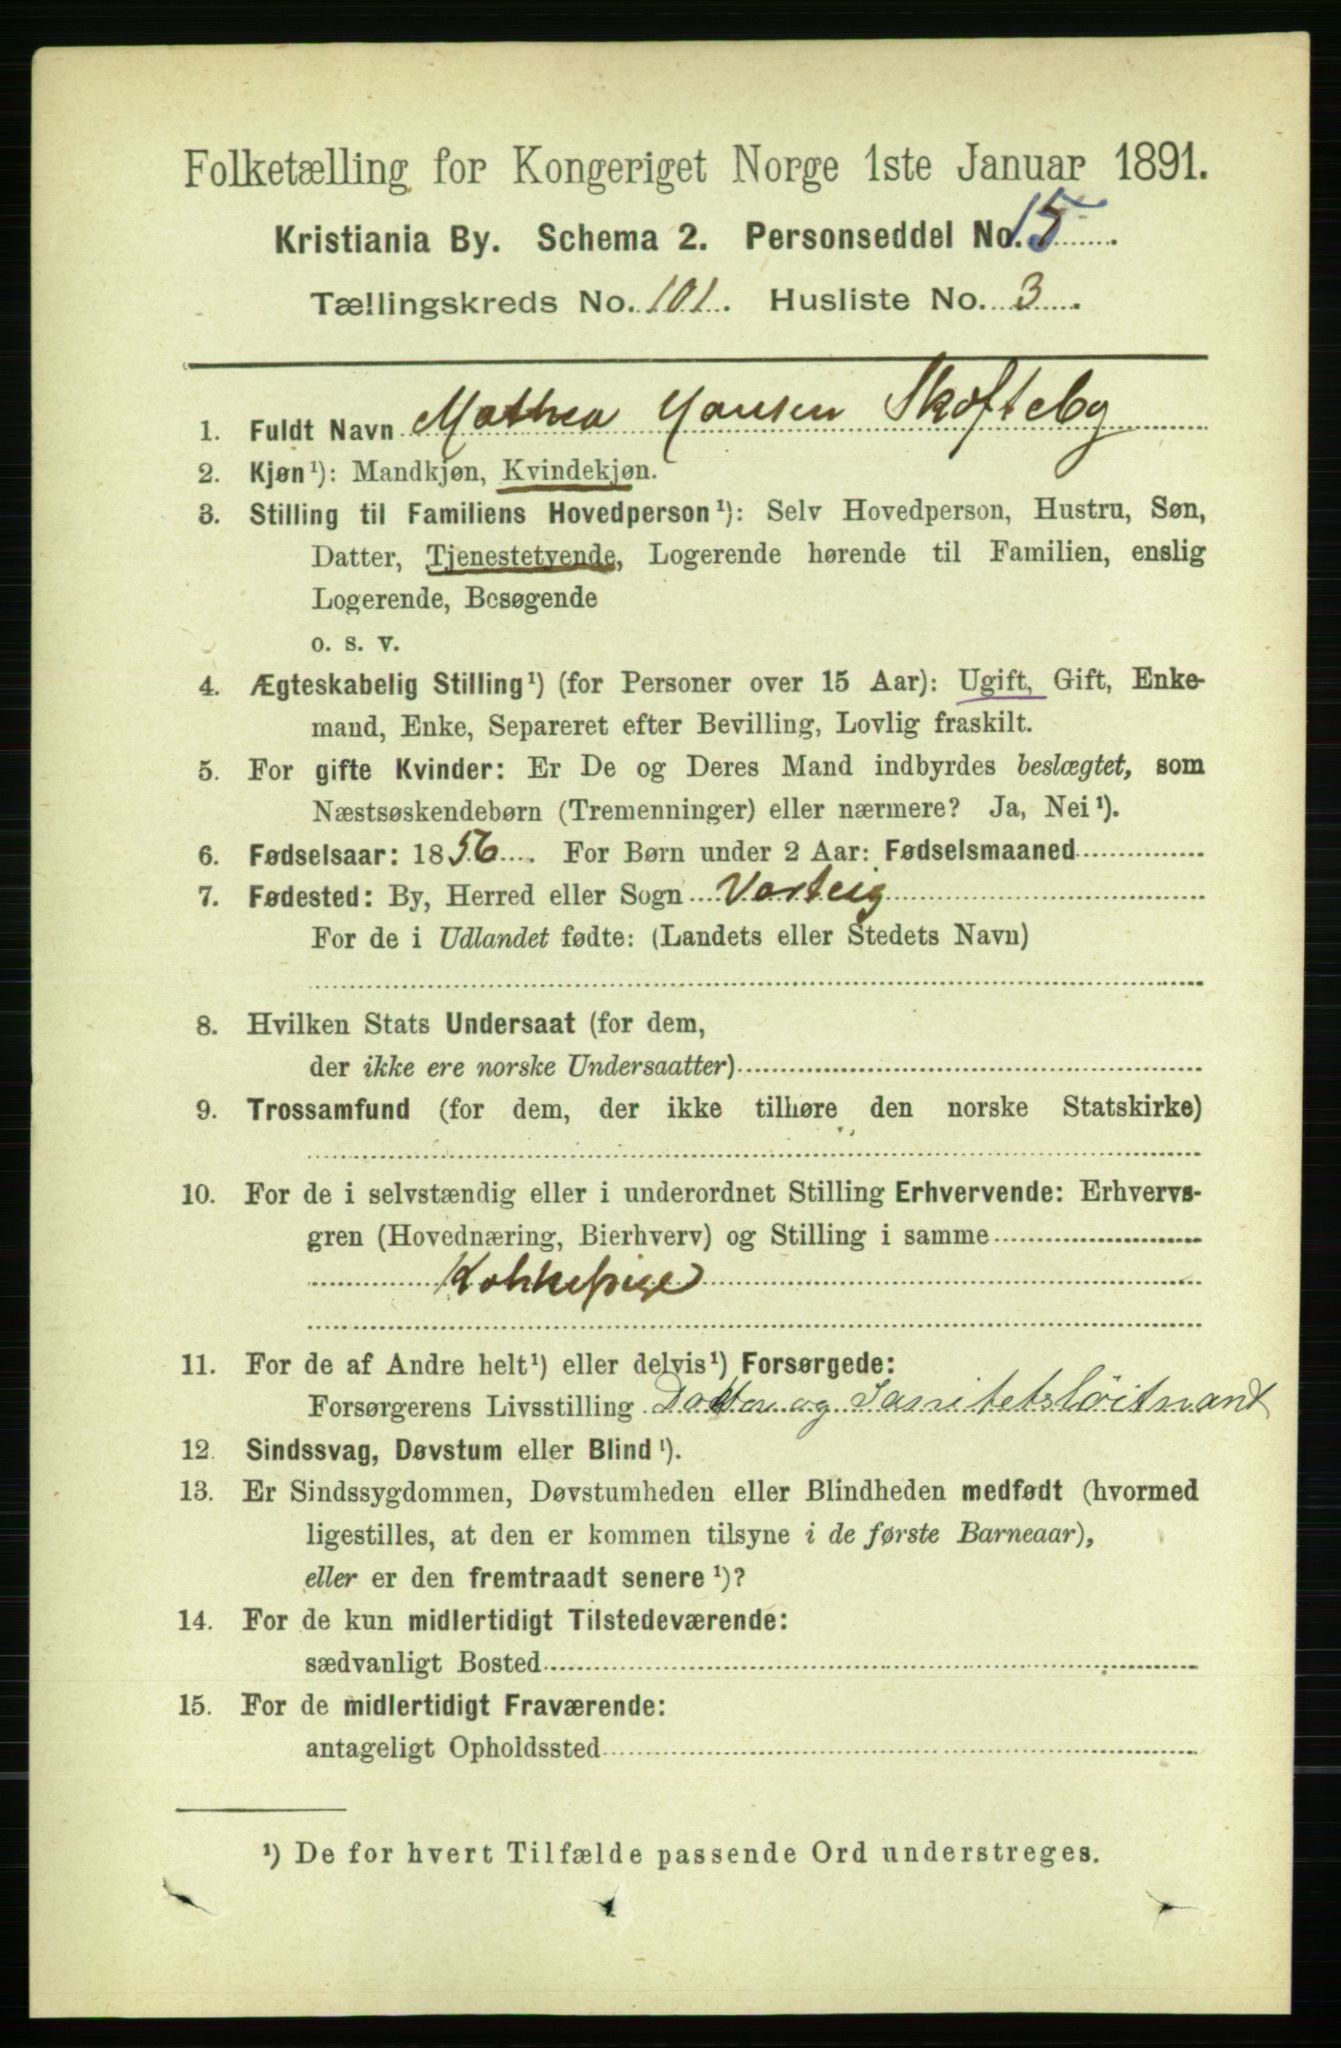 Folketælling for Kongeriget Norge 1ste Januar 1891.
Kristiania By. Schema 2. Personseddel No. 15
Tællingskreds No. 101. Husliste No. 3.
1. Fuldt Navn Mathea Hansen Skofteby
2. Kjøn¹): Mandkjøn, Kvindekjøn.
3. Stilling til Familiens Hovedperson¹): Selv Hovedperson, Hustru, Søn,
Datter, Tjenestetyende, Logerende hørende til Familien, enslig
Logerende, Besøgende
o. s. v.
4. Ægteskabelig Stilling¹) (for Personer over 15 Aar): Ugift, Gift, Enke-
mand, Enke, Separeret efter Bevilling, Lovlig fraskilt.
5. For gifte Kvinder: Er De og Deres Mand indbyrdes beslægtet, som
Næstsøskendebørn (Tremenninger) eller nærmere? Ja, Nei¹).
6. Fødselsaar: 1856. For Børn under 2 Aar: Fødselsmaaned
7. Fødested: By, Herred eller Sogn Varteig
For de i Udlandet fødte: (Landets eller Stedets Navn)
8. Hvilken Stats Undersaat (for dem,
der ikke ere norske Undersaatter)
9. Trossamfund (for dem, der ikke tilhøre den norske Statskirke)
10. For de i selvstændig eller i underordnet Stilling Erhvervende: Erhvervs-
gren (Hovednæring, Bierhverv) og Stilling i samme
Kokkepige
11. For de af Andre helt¹) eller delvis¹) Forsørgede:
Forsørgerens Livsstilling Doktor og Sanitetsløitnant
12. Sindssvag, Døvstum eller Blind¹).
13. Er Sindssygdommen, Døvstumheden eller Blindheden medfødt (hvormed
ligestilles, at den er kommen tilsyne i de første Barneaar),
eller er den fremtraadt senere¹)?
14. For de kun midlertidigt Tilstedeværende:
sædvanligt Bosted
15. For de midlertidigt Fraværende:
antageligt Opholdssted
¹) De for hvert Tilfælde passende Ord understreges.